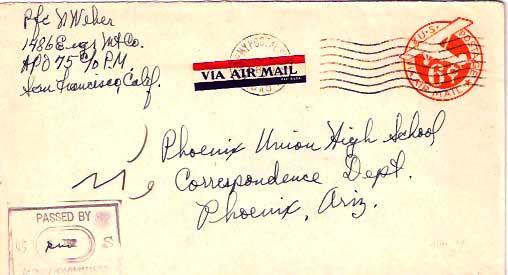 Pfc N Weher
1486 Engr Mt Co.
APO 75 c/o P.M.
San Francisco, Calif.
VIA AIR MAIL
U.S. POSTAGE
6¢
VIA AIR MAIL
Phoenix Union High School
Correspondence Dept.
Phoenix, Ariz.
PASSED BY
S